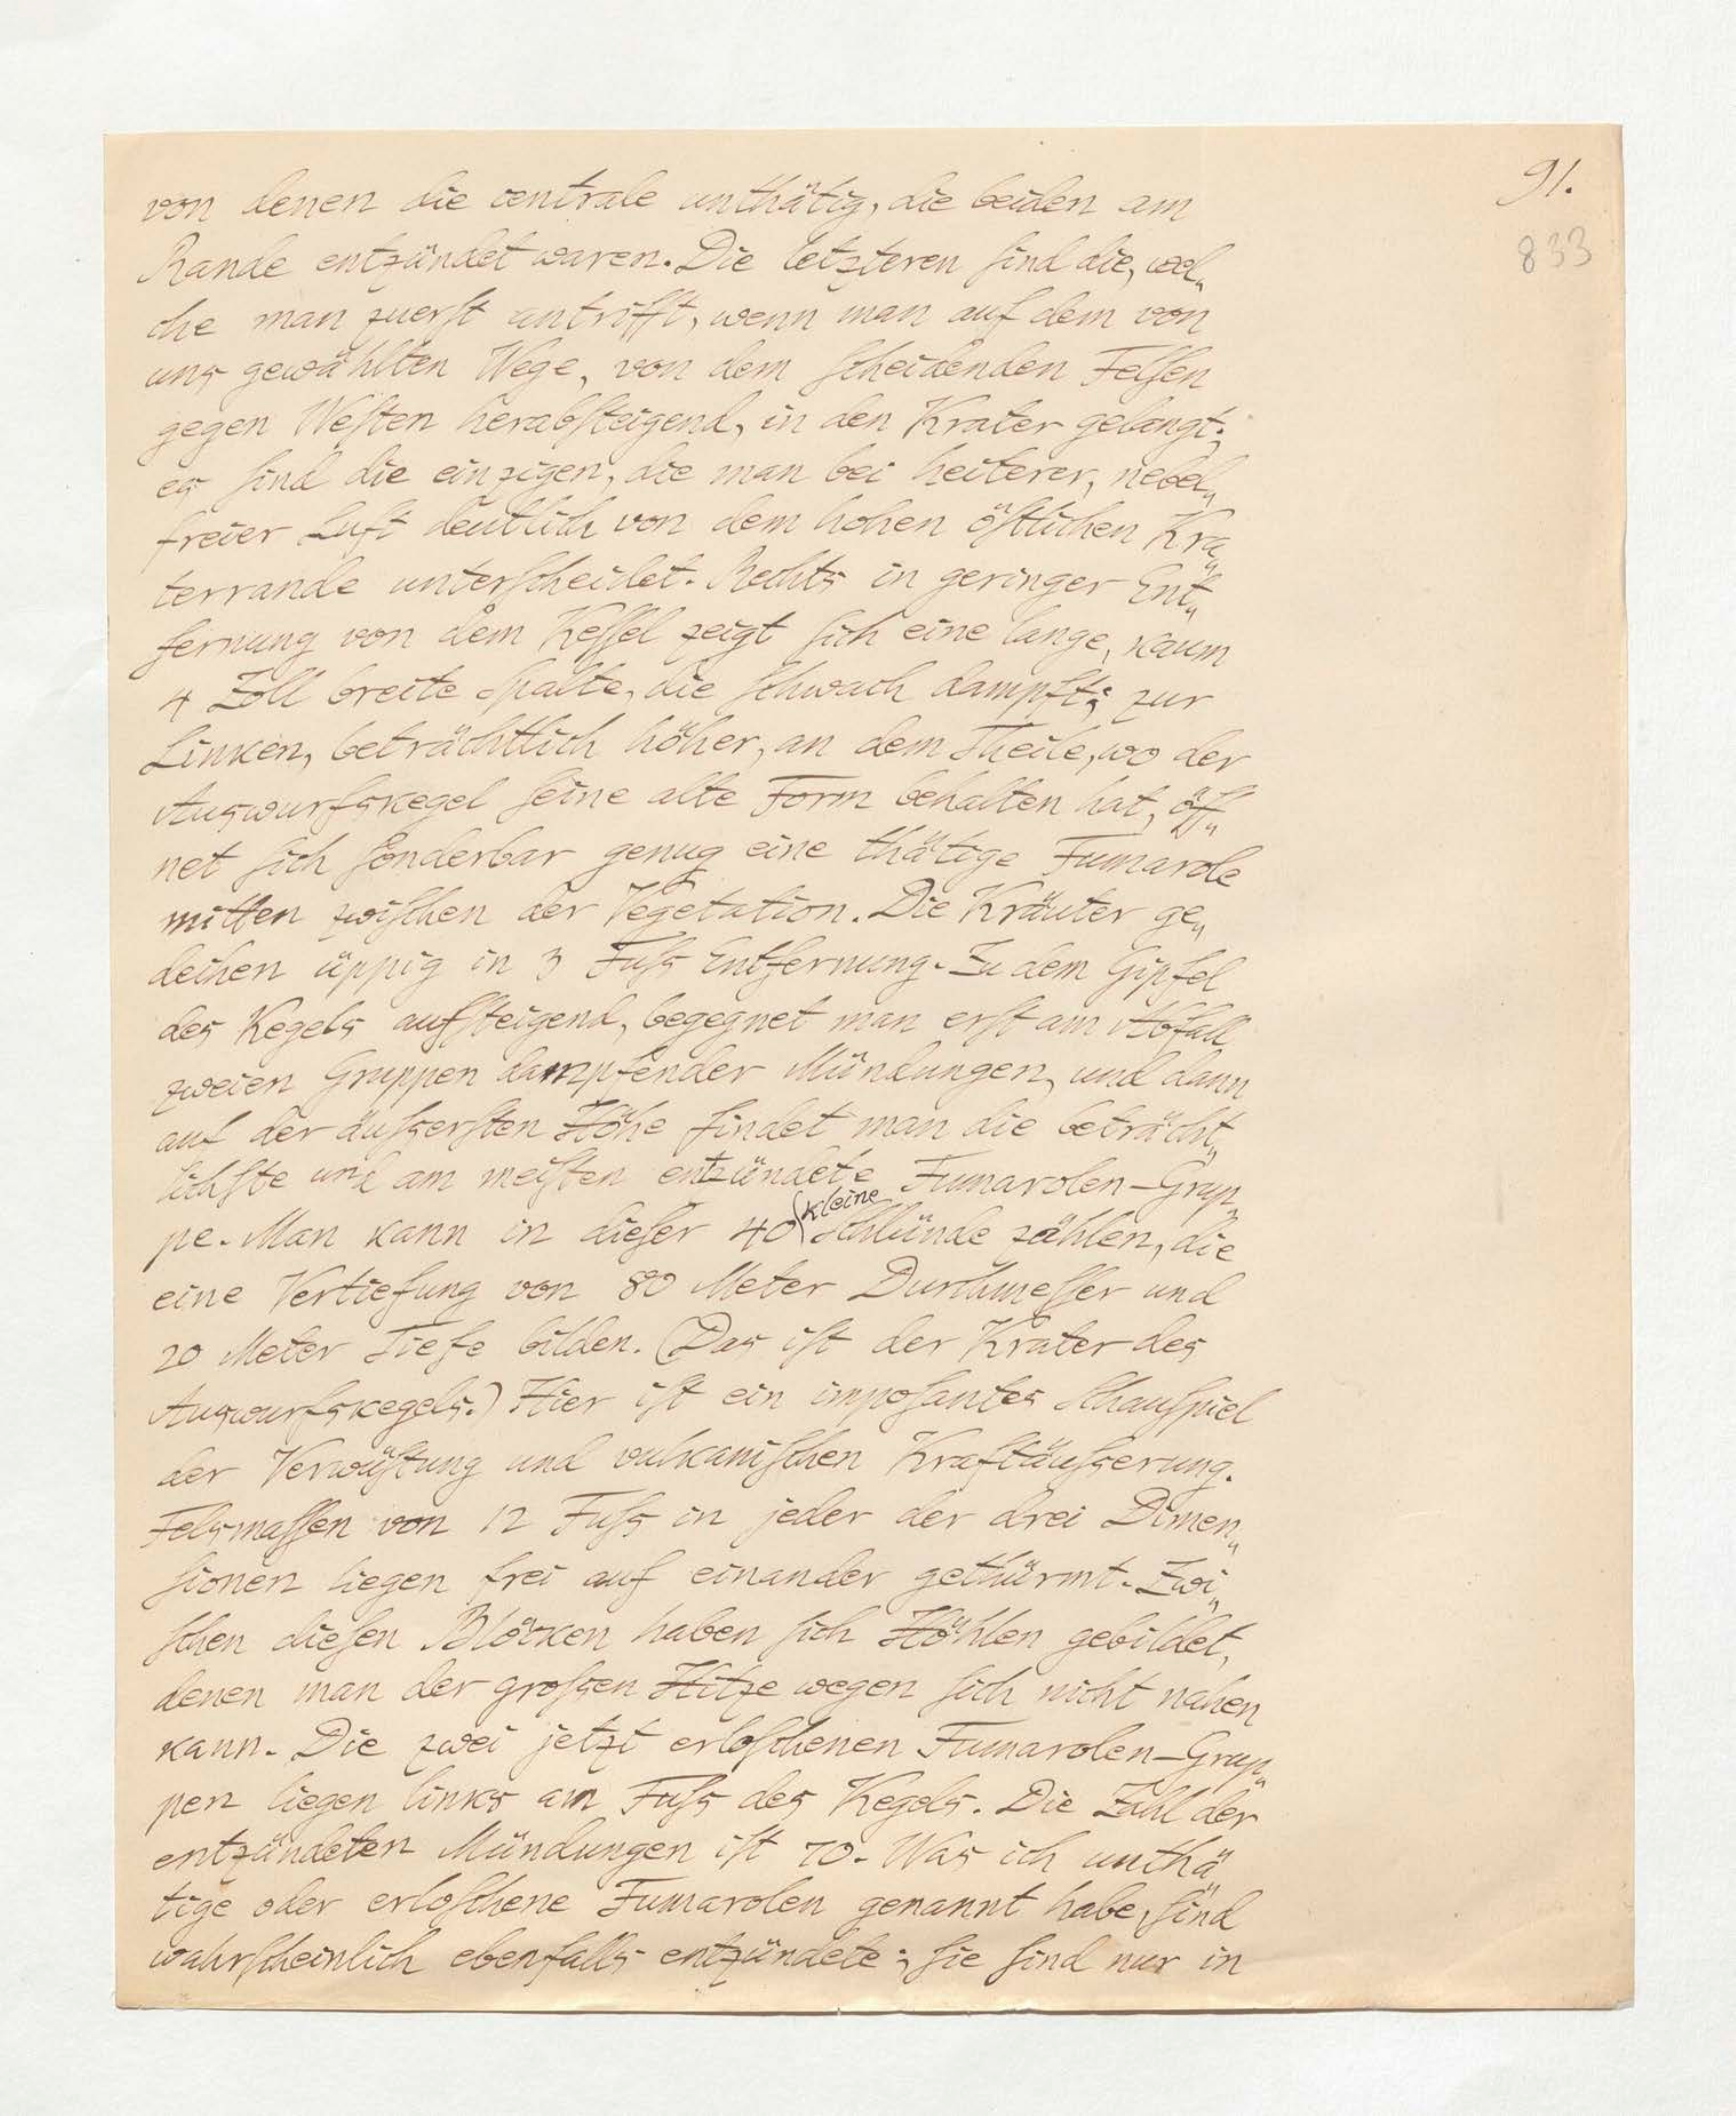 91.
833
von denen die centrale unthätig, die beiden am
Rande entzündet waren. Die letzteren ſind die, wel„
che man zuerſt antrifft, wenn man auf dem von
uns gewählten Wege, von dem ſcheidenden Felſen
gegen Weſten herabſteigend, in den Krater gelangt;
es ſind die einzigen, die man bei heiterer, nebel„
freier Luft deutlich von dem hohen öſtlichen Kra„
terrande unterſcheidet. Rechts in geringer Ent„
fernung von dem Keſſel zeigt ſich eine lange, kaum
4 Zoll breite Spalte, die ſchwach dampft; zur
Linken, beträchtlich höher, an dem Theile, wo der
Auswurfskegel ſeine alte Form behalten hat, öff„
net ſich ſonderbar genug eine thätige Fumarole
mitten zwiſchen der Vegetation. Die Kräuter ge„
deihen üppig in 3 Fuſs Entfernung. Zu dem Gipfel
des Kegels aufſteigend, begegnet man erſt am Abfall
zweien Gruppen dampfender Mündungen, und dann
auf der äuſserſten Höhe findet man die beträcht„
lichſte und am meiſten entzündete Fumarolen-Grup„
pe. Man kann in dieſer 40 kleine Schlünde zählen, die
eine Vertiefung von 80 Meter Durchmeſſer und
20 Meter Tiefe bilden. (Das iſt der Krater des
Auswurfskegels.) Hier iſt ein impoſantes Schauſpiel
der Verwüſtung und vulkaniſchen Kraftäuſserung.
Felsmaſſen von 12 Fuſs in jeder der drei Dimen„
ſionen liegen frei auf einander gethürmt. Zwi„
ſchen dieſen Blöcken haben ſich Höhlen gebildet,
denen man der groſsen Hitze wegen ſich nicht nahen
kann. Die zwei jetzt erloſchenen Fumarolen-Grup„
pen liegen links am Fuſs des Kegels. Die Zahl der
entzündeten Mündungen iſt 70. Was ich unthä„
tige oder erloſchene Fumarolen genannt habe, ſind
wahrſcheinlich ebenfalls entzündete; ſie ſind nur in